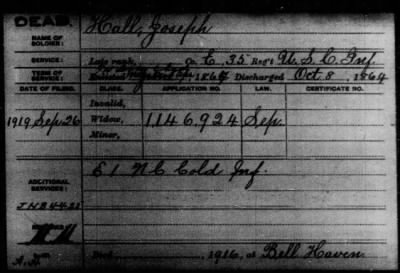 DEAD.
Hall, Joseph
NAME OF SOLDIER:
SERVICE: Late rank, Co. E, 35 Reg't U. S. C. Inf.
TERM OF SERVICE: 1864 Discharged Oct 8, 1864
DATE OF FILING. CLASS. APPLICATION NO. LAW. CERTIFICATE NO.
Invalid,
1919 Sep 26 Widow, 1146924 Sep.
Minor,
E 1 N C Cold Inf.
ADDITIONAL SERVICES:
Died 1916, at Bell Haven